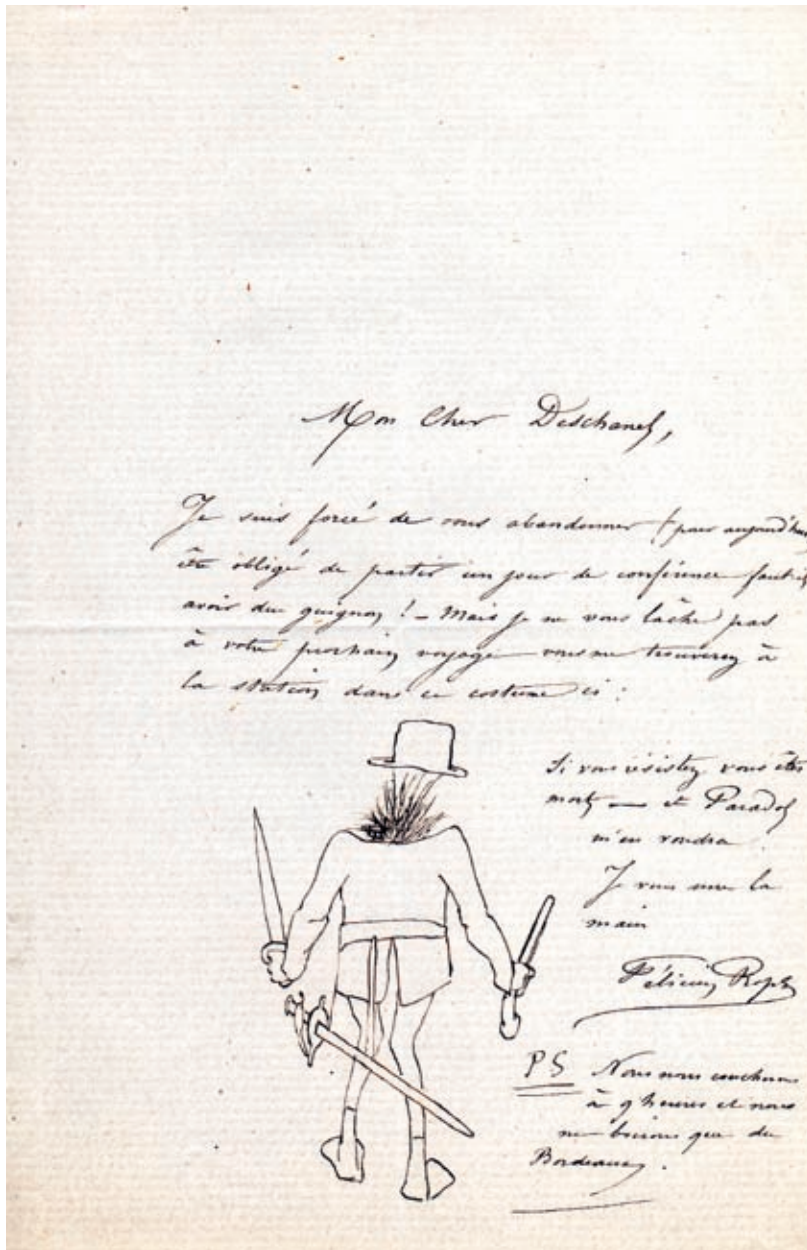 Mon Cher Deschanel,
Je suis forcé de vous abandonner (pour aujourd'hui
être obligé de partir un jour de conférence faut-il
avoir du guignon ! – Mais je ne vous lâche pas
à votre prochain voyage vous me trouverez à
la station dans ce costume ci :
Si vous résistez vous êtes
mort — et Paradol
m'en voudra.
Je vous serre la
main
Félicien Rops
PS Nous nous couchons
à 9 heures et nous
ne buvons que du
Bordeaux.